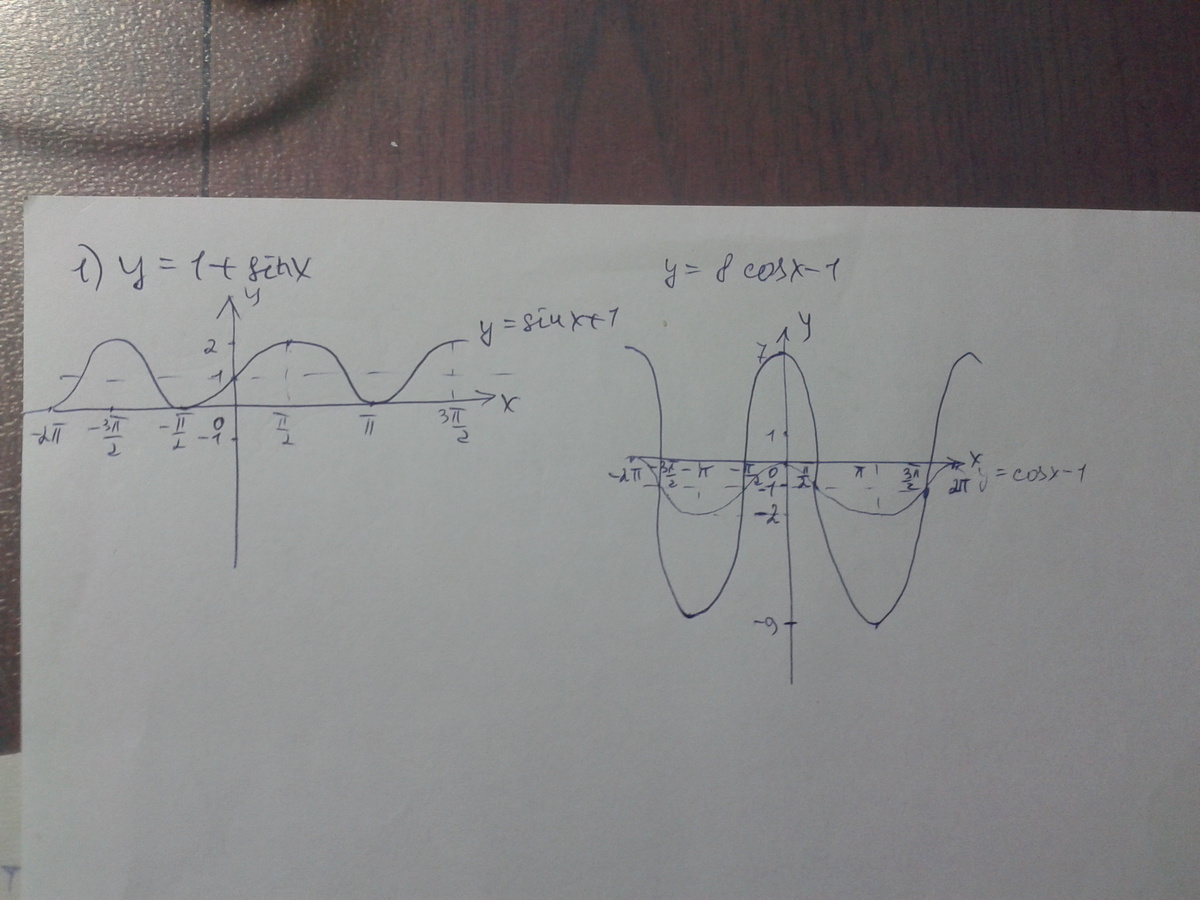 1) y = 1 + sinx
y
y = sinx+1
2
1
-2π -3π/2 -π/2 0 π/2 π 3π/2 x
-1
y = 8 cosx-1
y
7
1
-2π -3π/2 -π -π/2 0 π/2 π 3π/2 2π x
y = cosx-1
-1
-2
-9